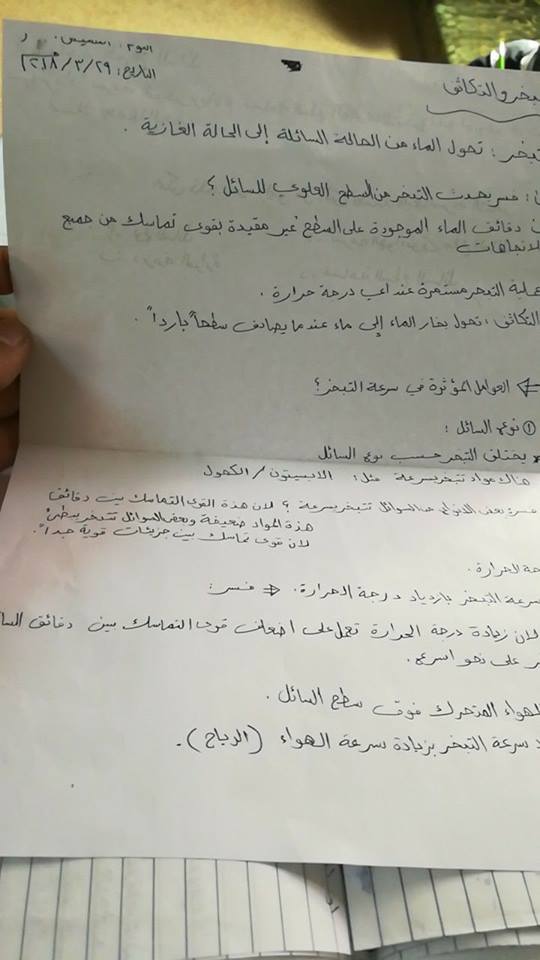 اليوم: الخميس.
التاريخ: ٢٩/٣/٢٠١٨
التبخر والتكاثف
التبخر: تحول الماء من الحالة السائلة إلى الحالة الغازية.
فسر يحدث التبخر من السطح العلوي للسائل؟
دقائق الماء الموجودة على السطح غير مقيدة بقوى تماسك من جميع
الاتجاهات
عملية التبخر مستمرة عند اي درجة حرارة.
التكاثف: تحول بخار الماء إلى ماء عندما يصادف سطحاً بارداً.
العوامل المؤثرة في سرعة التبخر؟
① نوع السائل:
يختلف التبخر حسب نوع السائل
هناك مواد تتبخر بسرعة مثل: الاسيتون / الكحول
فسر: بعض الانواع من السوائل تتبخر بسرعة؟ لان هذة القوى التماسك بين دقائق
هذة المواد ضعيفة وبعض السوائل تتبخر ببطئ
لان قوى تماسك بين جزيئات قوية جداً.
الحرارة.
سرعة التبخر بازدياد درجة الحرارة. فسر:
لان زيادة درجة الحرارة تعمل على اضعاف قوى التماسك بين دقائق
على نحو اسرع.
الهواء المتحرك فوق سطح السائل.
سرعة التبخر بزيادة سرعة الهواء (الرياح).